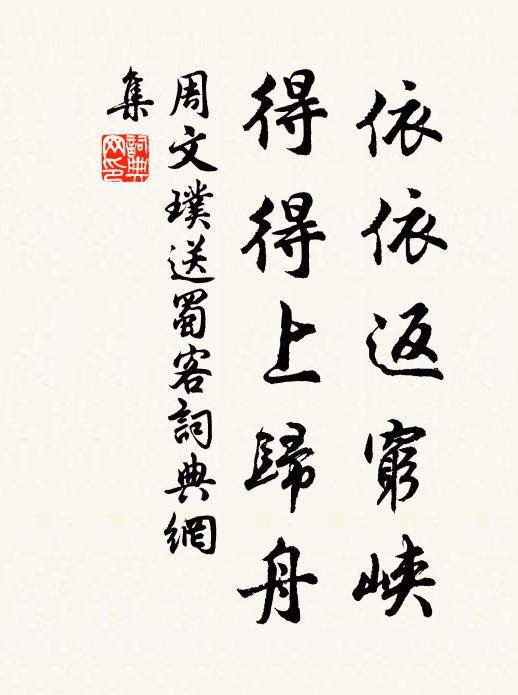 依依返窮峽
得得上歸舟
周文璞送蜀客詞典網
集
詞典
网印